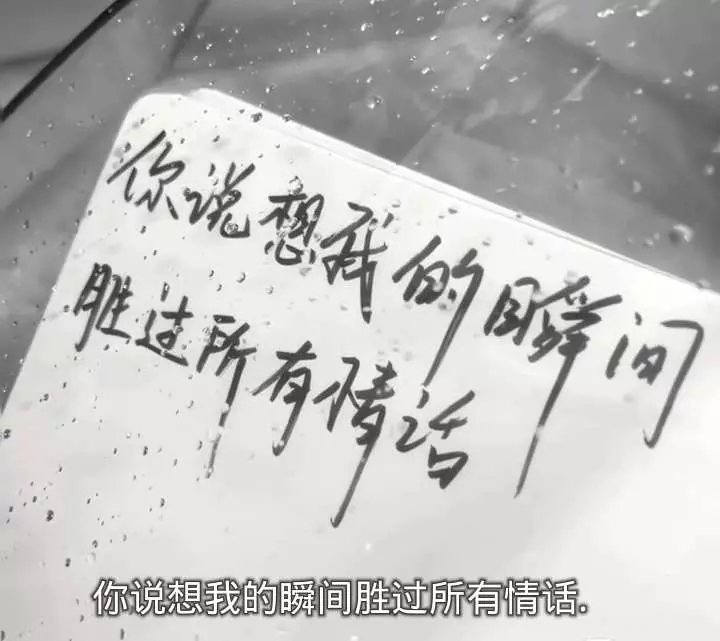 你说想我的瞬间
胜过所有情话
你说想我的瞬间胜过所有情话.